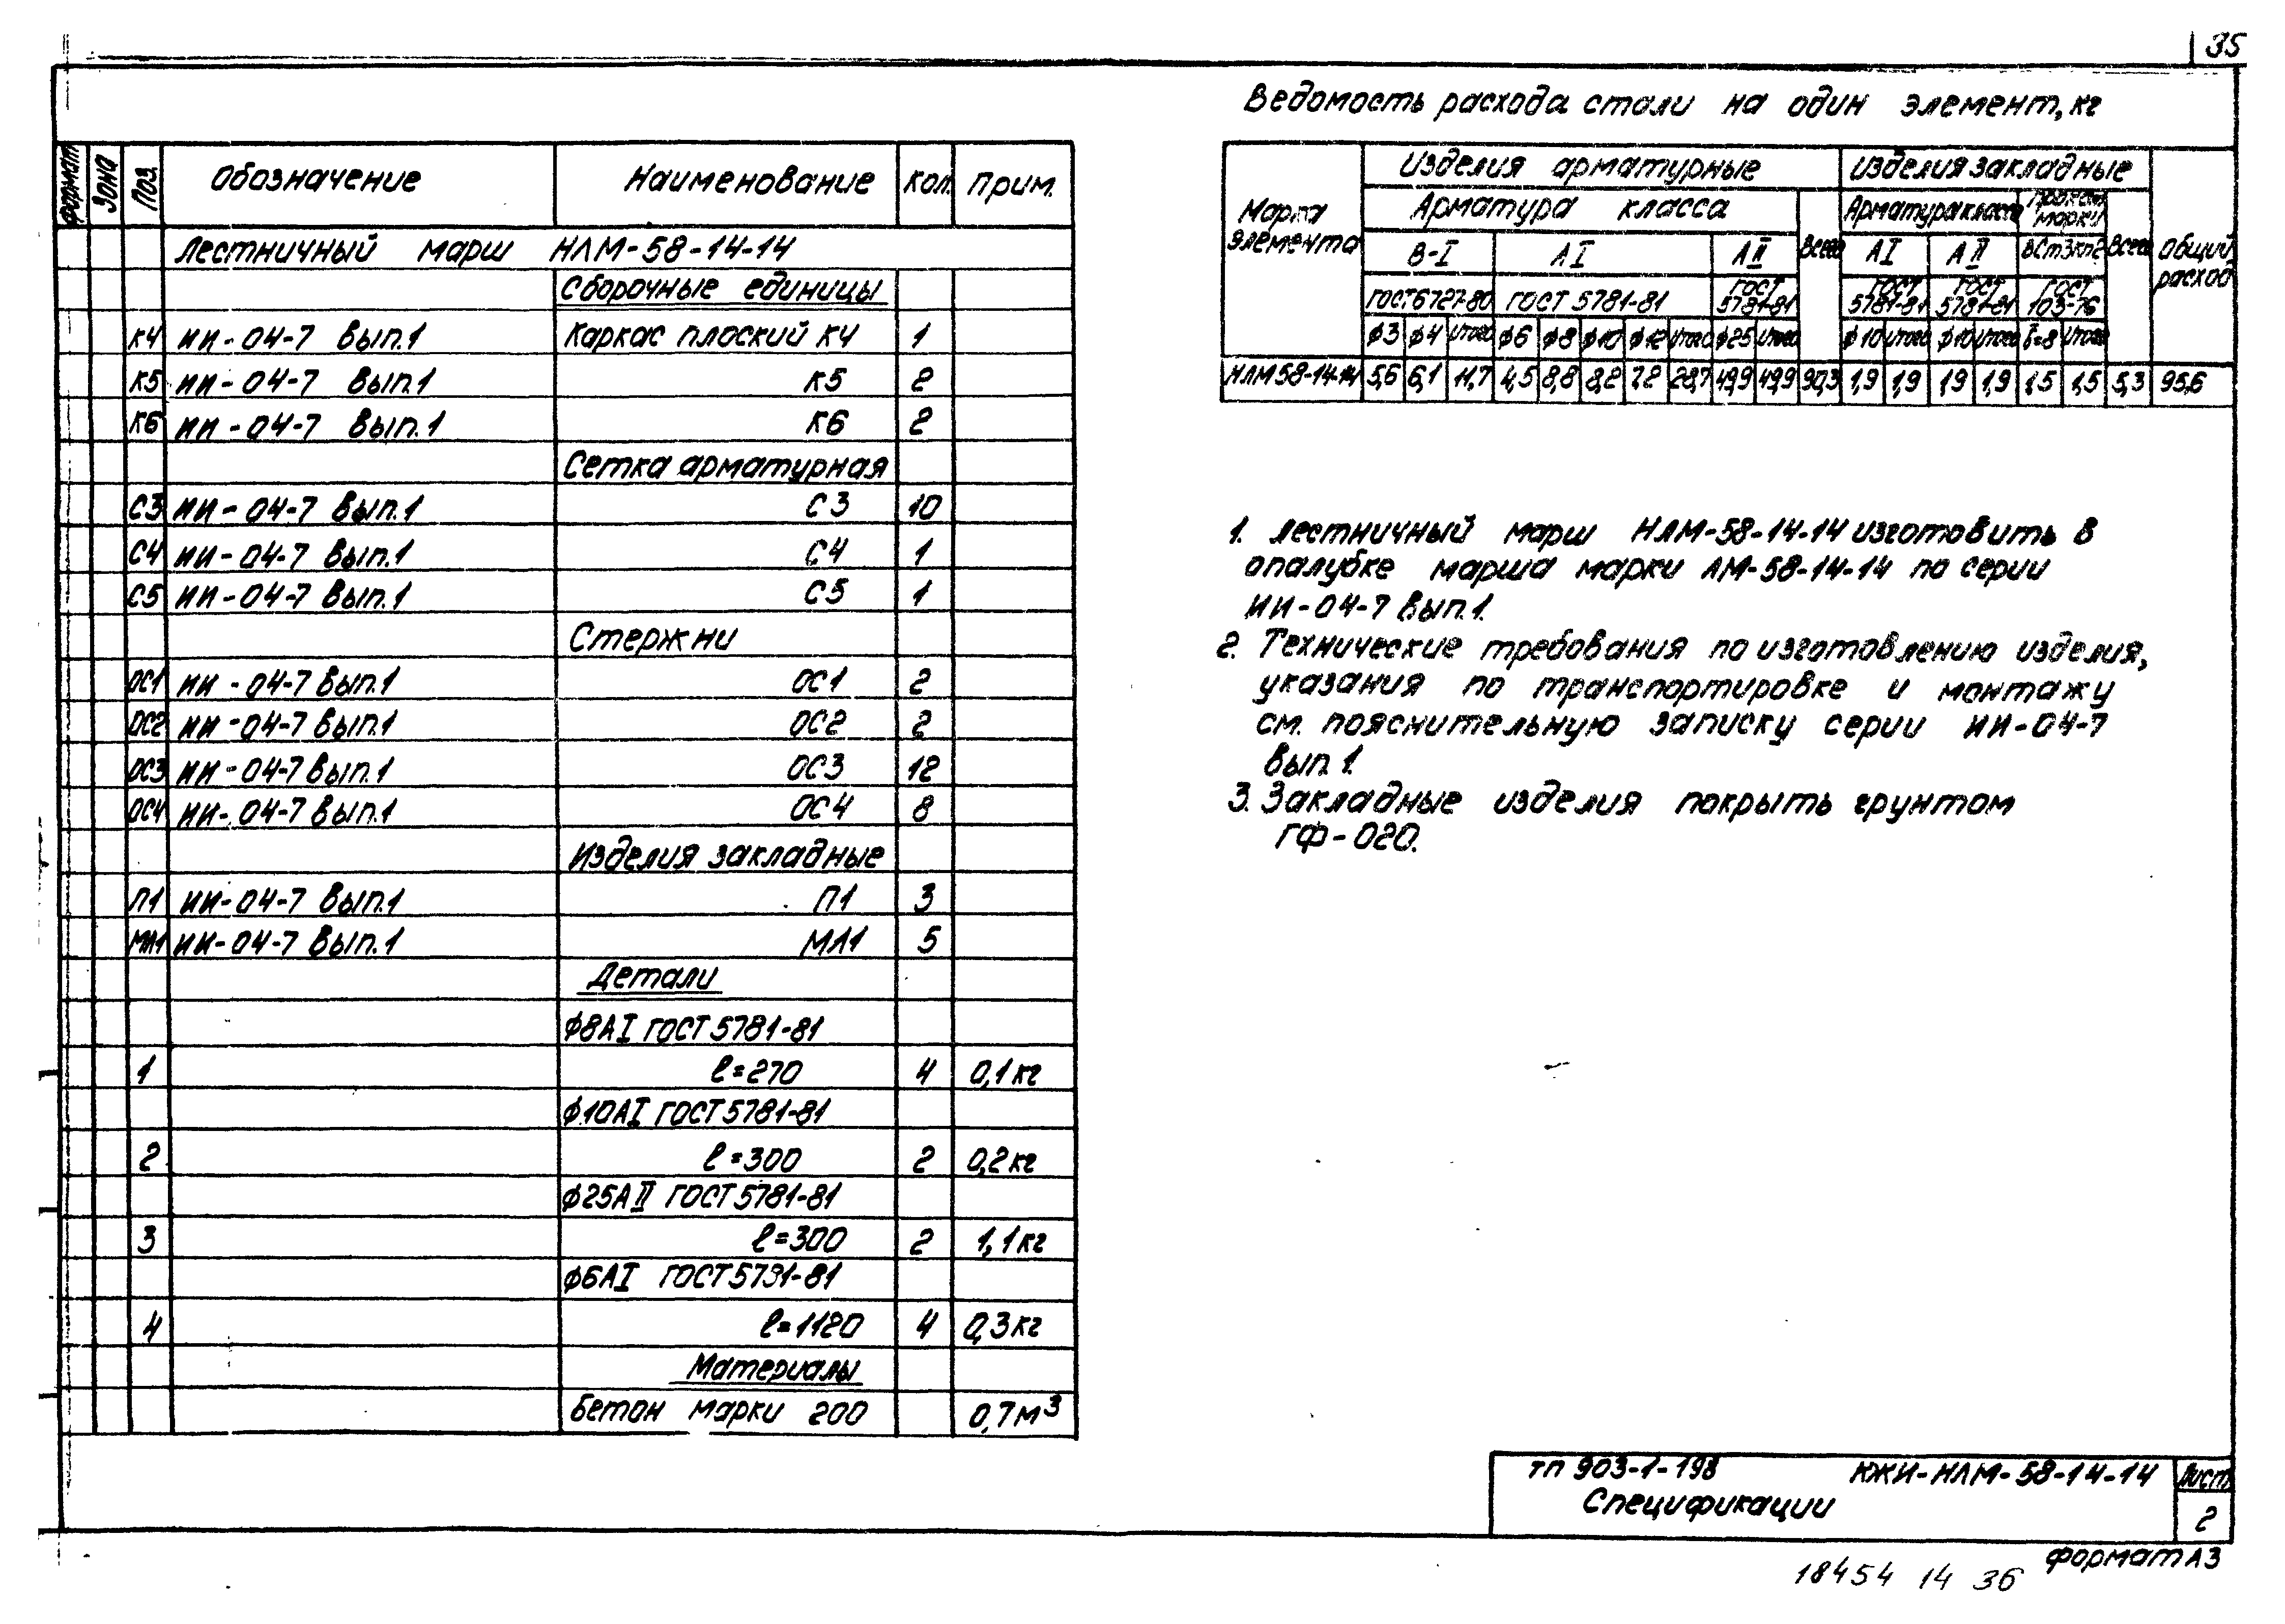 35
Ведомость расхода стали на один элемент, кг
Формат Зона Поз. Обозначение Наименование Кол. Прим.
Лестничный марш НЛМ-58-14-14
Сборочные единицы
К4 ИИ-04-7 Вып.1 Каркас плоский К4 1
К5 ИИ-04-7 Вып.1 К5 2
К6 ИИ-04-7 Вып.1 К6 2
Сетка арматурная
С3 ИИ-04-7 Вып.1 С3 10
С4 ИИ-04-7 Вып.1 С4 1
С5 ИИ-04-7 Вып.1 С5 1
Стержни
ОС1 ИИ-04-7 Вып.1 ОС1 2
ОС2 ИИ-04-7 Вып.1 ОС2 2
ОС3 ИИ-04-7 Вып.1 ОС3 12
ОС4 ИИ-04-7 Вып.1 ОС4 8
Изделия закладные
П1 ИИ-04-7 Вып.1 П1 3
МЛ1 ИИ-04-7 Вып.1 МЛ1 5
Детали
ф8АI ГОСТ 5781-81
1 ℓ=270 4 0,1кг
ф10АI ГОСТ 5781-81
2 ℓ=300 2 0,2кг
ф25АII ГОСТ 5781-81
3 ℓ=300 2 1,1кг
ф6АI ГОСТ 5781-81
4 ℓ=1120 4 0,3кг
Материалы
Бетон марки 200 0,7м³
Марка элемента Изделия арматурные Изделия закладные Общий расход
Арматура класса Всего Арматура класса Прокат марки Всего
В-I АI АII АI АII ВСт3кп2
ГОСТ 6727-80 ГОСТ 5781-81 ГОСТ 5781-81 ГОСТ 5781-81 ГОСТ 5781-81 ГОСТ 103-76
ф3 ф4 Итого ф6 ф8 ф10 ф12 Итого ф25 Итого ф10 Итого ф10 Итого δ=8 Итого
НЛМ58-14-14 5,6 6,1 11,7 4,5 8,8 8,2 7,2 28,7 49,9 49,9 90,3 1,9 1,9 1,9 1,9 1,5 1,5 5,3 95,6
1. Лестничный марш НЛМ-58-14-14 изготовить в
опалубке марша марки ЛМ-58-14-14 по серии
ИИ-04-7 Вып.1.
2. Технические требования по изготовлению изделия,
указания по транспортировке и монтажу
см. пояснительную записку серии ИИ-04-7
Вып. 1.
3. Закладные изделия покрыть грунтом
ГФ-020.
ТП 903-1-198 КЖИ-НЛМ-58-14-14 Лист
Спецификации 2
Формат А3
18454 14 36